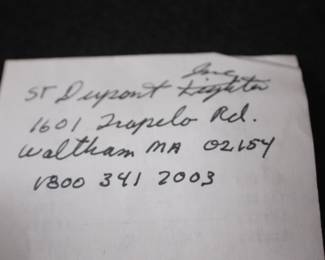 Inc
ST Dupont Lighter
1601 Trapelo Rd.
Waltham MA 02154
1800 341 2003